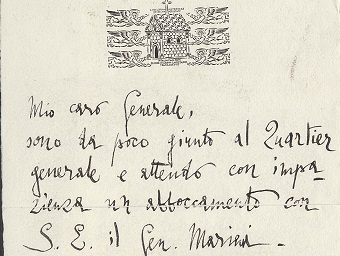 Mio caro Generale,
sono da poco giunto al Quartier
generale e attendo con impa-
zienza un abboccamento con
S. E. il Gen.